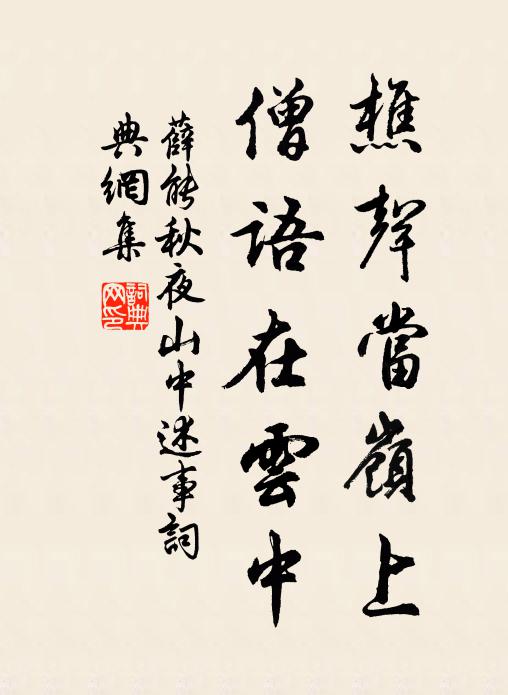 樵聲當嶺上
僧語在雲中
薛能秋夜山中述事詞
典網集
詞典网印